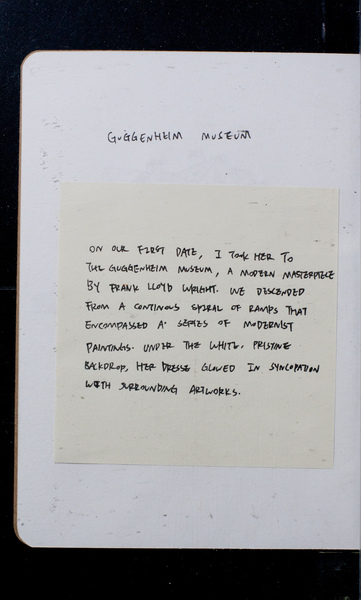 GUGGENHEIM MUSEUM
ON OUR FIRST DATE, I TOOK HER TO
THE GUGGENHEIM MUSEUM, A MODERN MASTERPIECE
BY FRANK LLOYD WRIGHT. WE DESCENDED
FROM A CONTINOUS SPIRAL OF RAMPS THAT
ENCOMPASSED A SERIES OF MODERNIST
PAINTINGS. UNDER THE WHITE, PRISTINE
BACKDROP, HER DRESSE GLOWED IN SYNCOPATION
WITH SURROUNDING ARTWORKS.